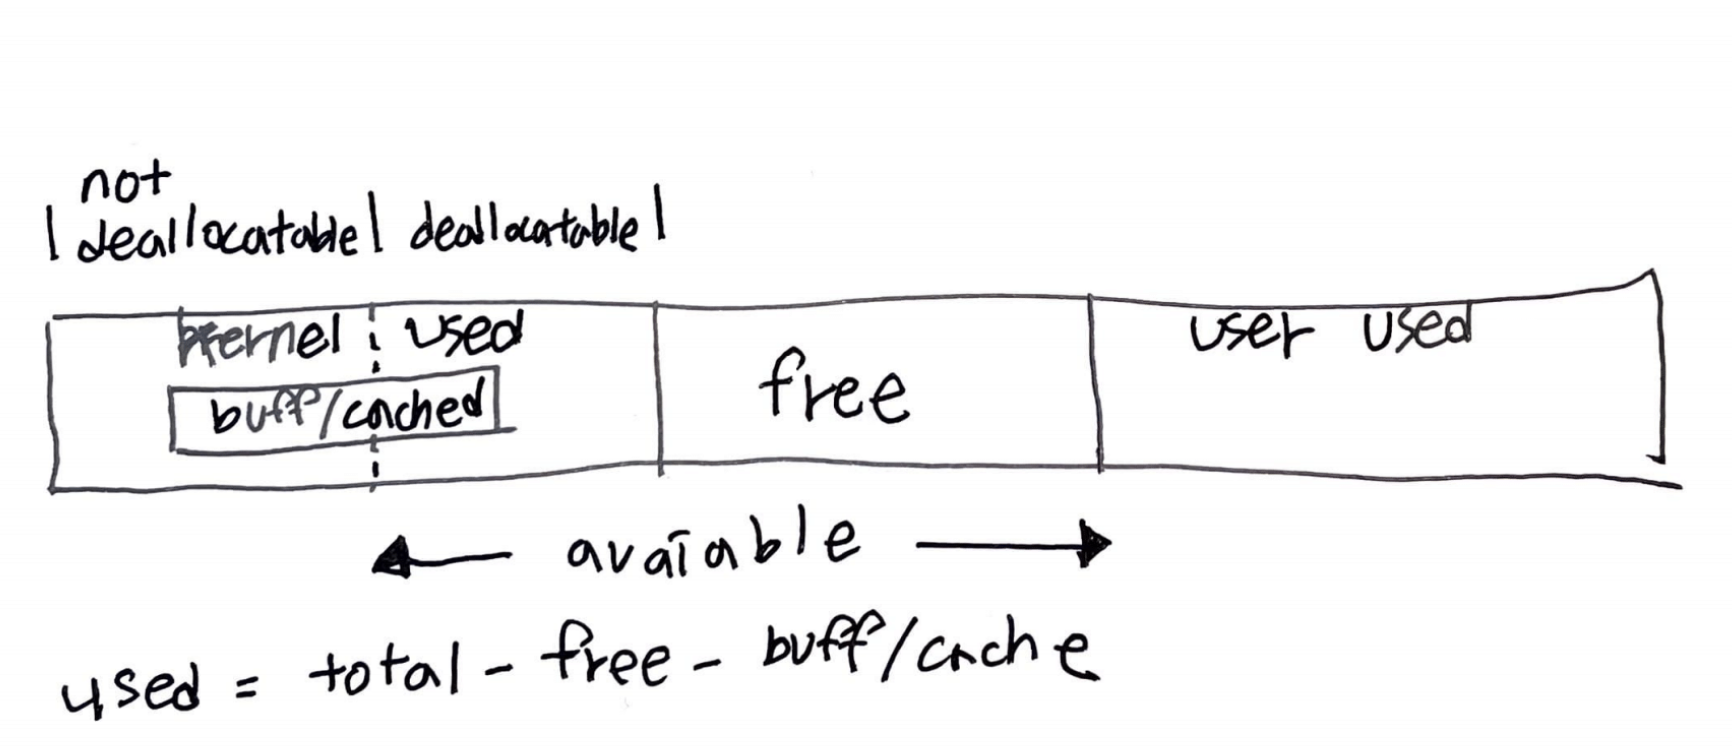 not
| deallocatable | deallocatable |
kernel used
buff/cached
free
user used
avaiable
used = total - free - buff/cache